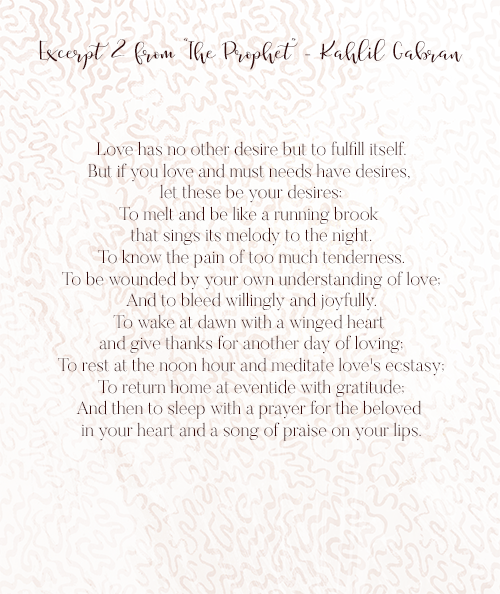 Excerpt 2 from "The Prophet" - Kahlil Gabran
Love has no other desire but to fulfill itself.
But if you love and must needs have desires,
let these be your desires:
To melt and be like a running brook
that sings its melody to the night.
To know the pain of too much tenderness.
To be wounded by your own understanding of love;
And to bleed willingly and joyfully.
To wake at dawn with a winged heart
and give thanks for another day of loving;
To rest at the noon hour and meditate love's ecstasy;
To return home at eventide with gratitude;
And then to sleep with a prayer for the beloved
in your heart and a song of praise on your lips.